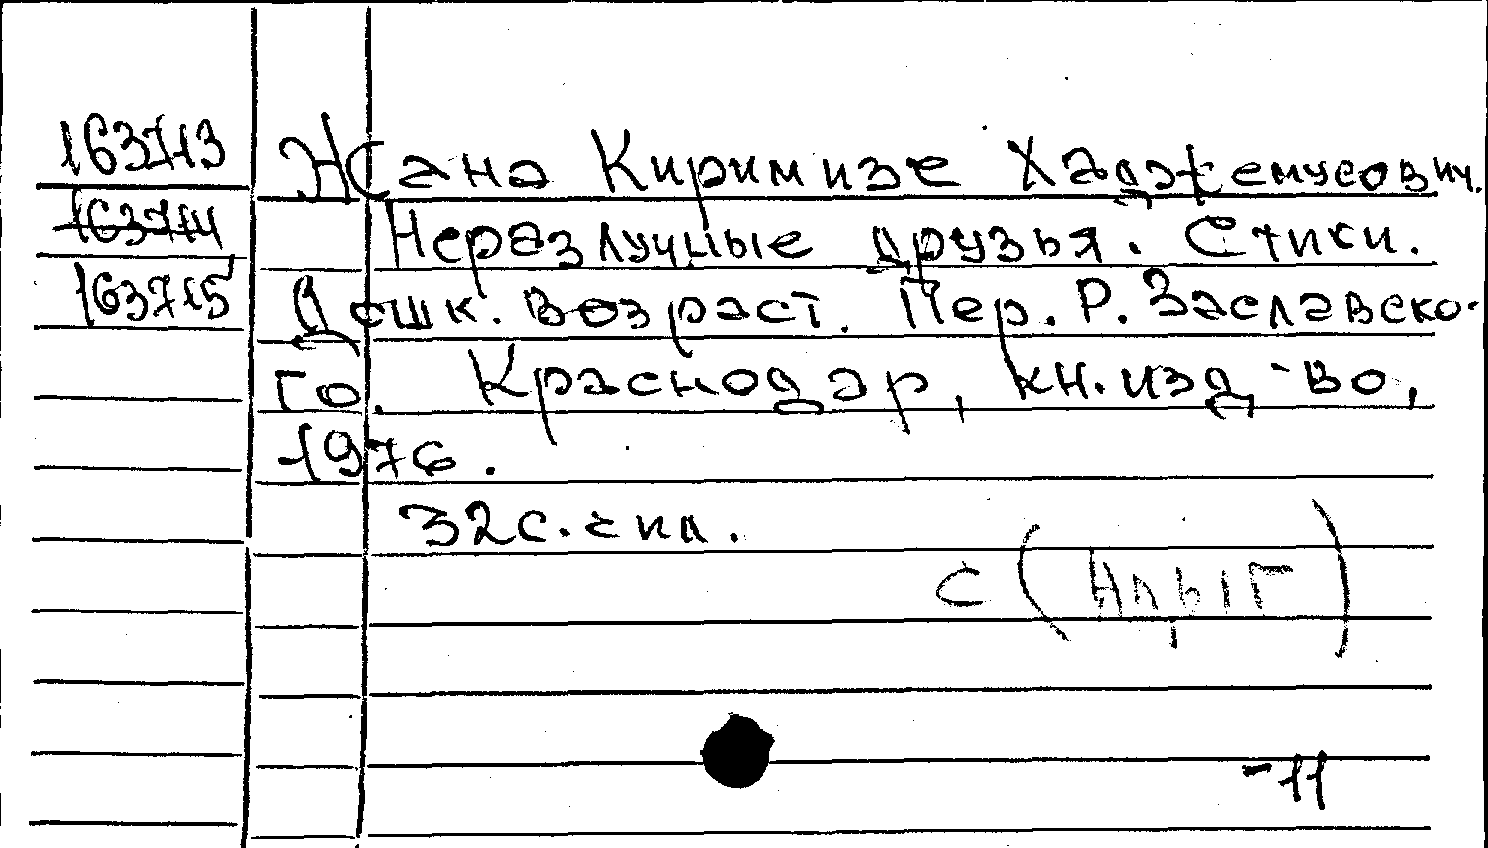 163713
163714
163715
Жана Киримизе Хаджемусович.
Неразлучные друзья. Стихи.
Дошк. возраст. Пер. Р. Заславско-
го. Краснодар, кн. изд-во,
1976.
32с. с ил.
С (Адыг)
-11